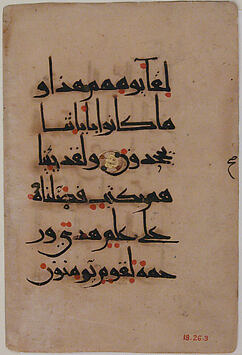 لقاء يومهم هذا و
ما كانوا باياتنا
يجحدون ولقد جئنا
هم بكتب فصلناه
على علم هدى ور
حمة لقوم يومنون
18.26.3